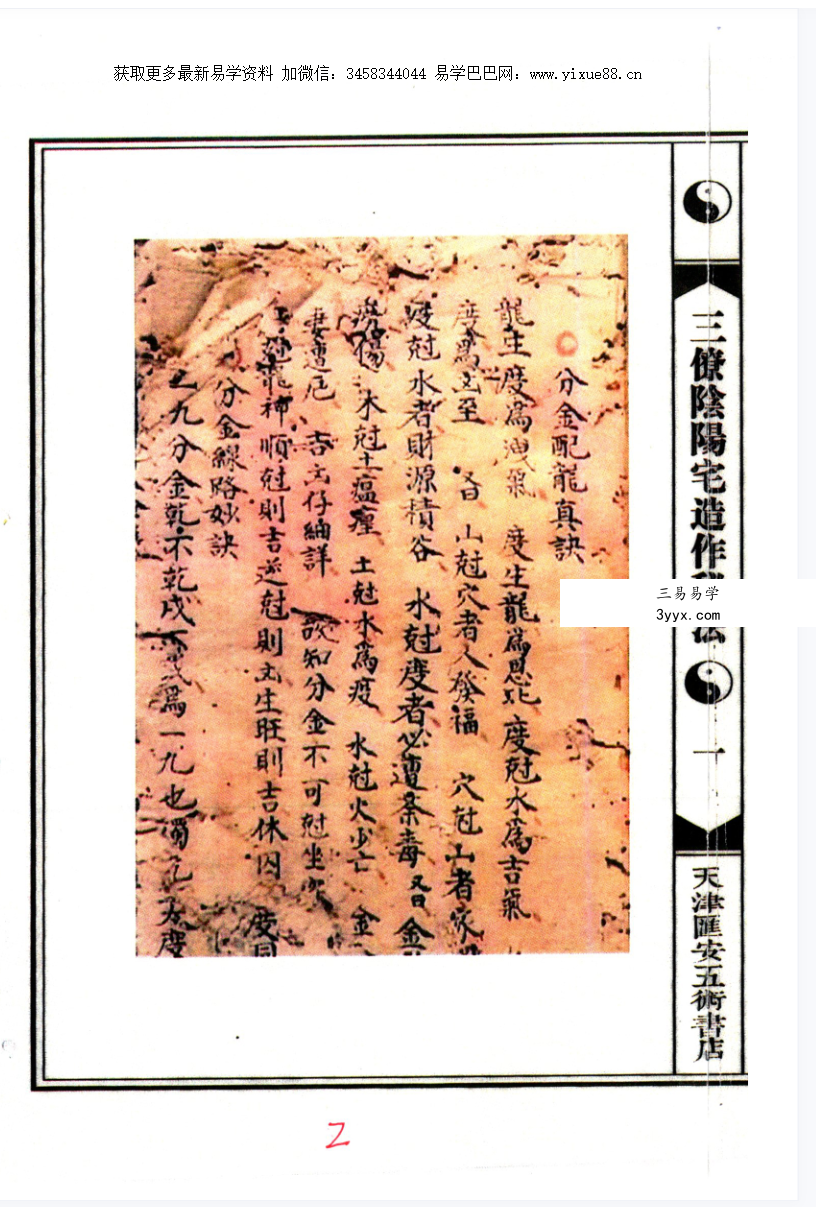 获取更多最新易学资料 加微信：3458344044 易学巴巴网：www.yixue88.cn
三僚陰陽宅造作 法
一
天津匯安五術書店
三易易学
3yyx.com
分金配龍真訣
龍生度爲洩氣 度生龍爲恩 度尅水爲吉氣
度 爲 至 又曰 山尅穴者人發福 穴尅山者家
度尅水者財源積谷 水尅度者必遭 毒 又曰 金
傷 木尅土瘟 土尅水爲疫 水尅火少亡 金
妻遭 吉 仔細詳 故知分金不可尅坐
龍神順尅則吉逆尅則 生旺則吉休囚 度同
分金線路妙訣
九分金乾不乾戌 爲一九也 度
2